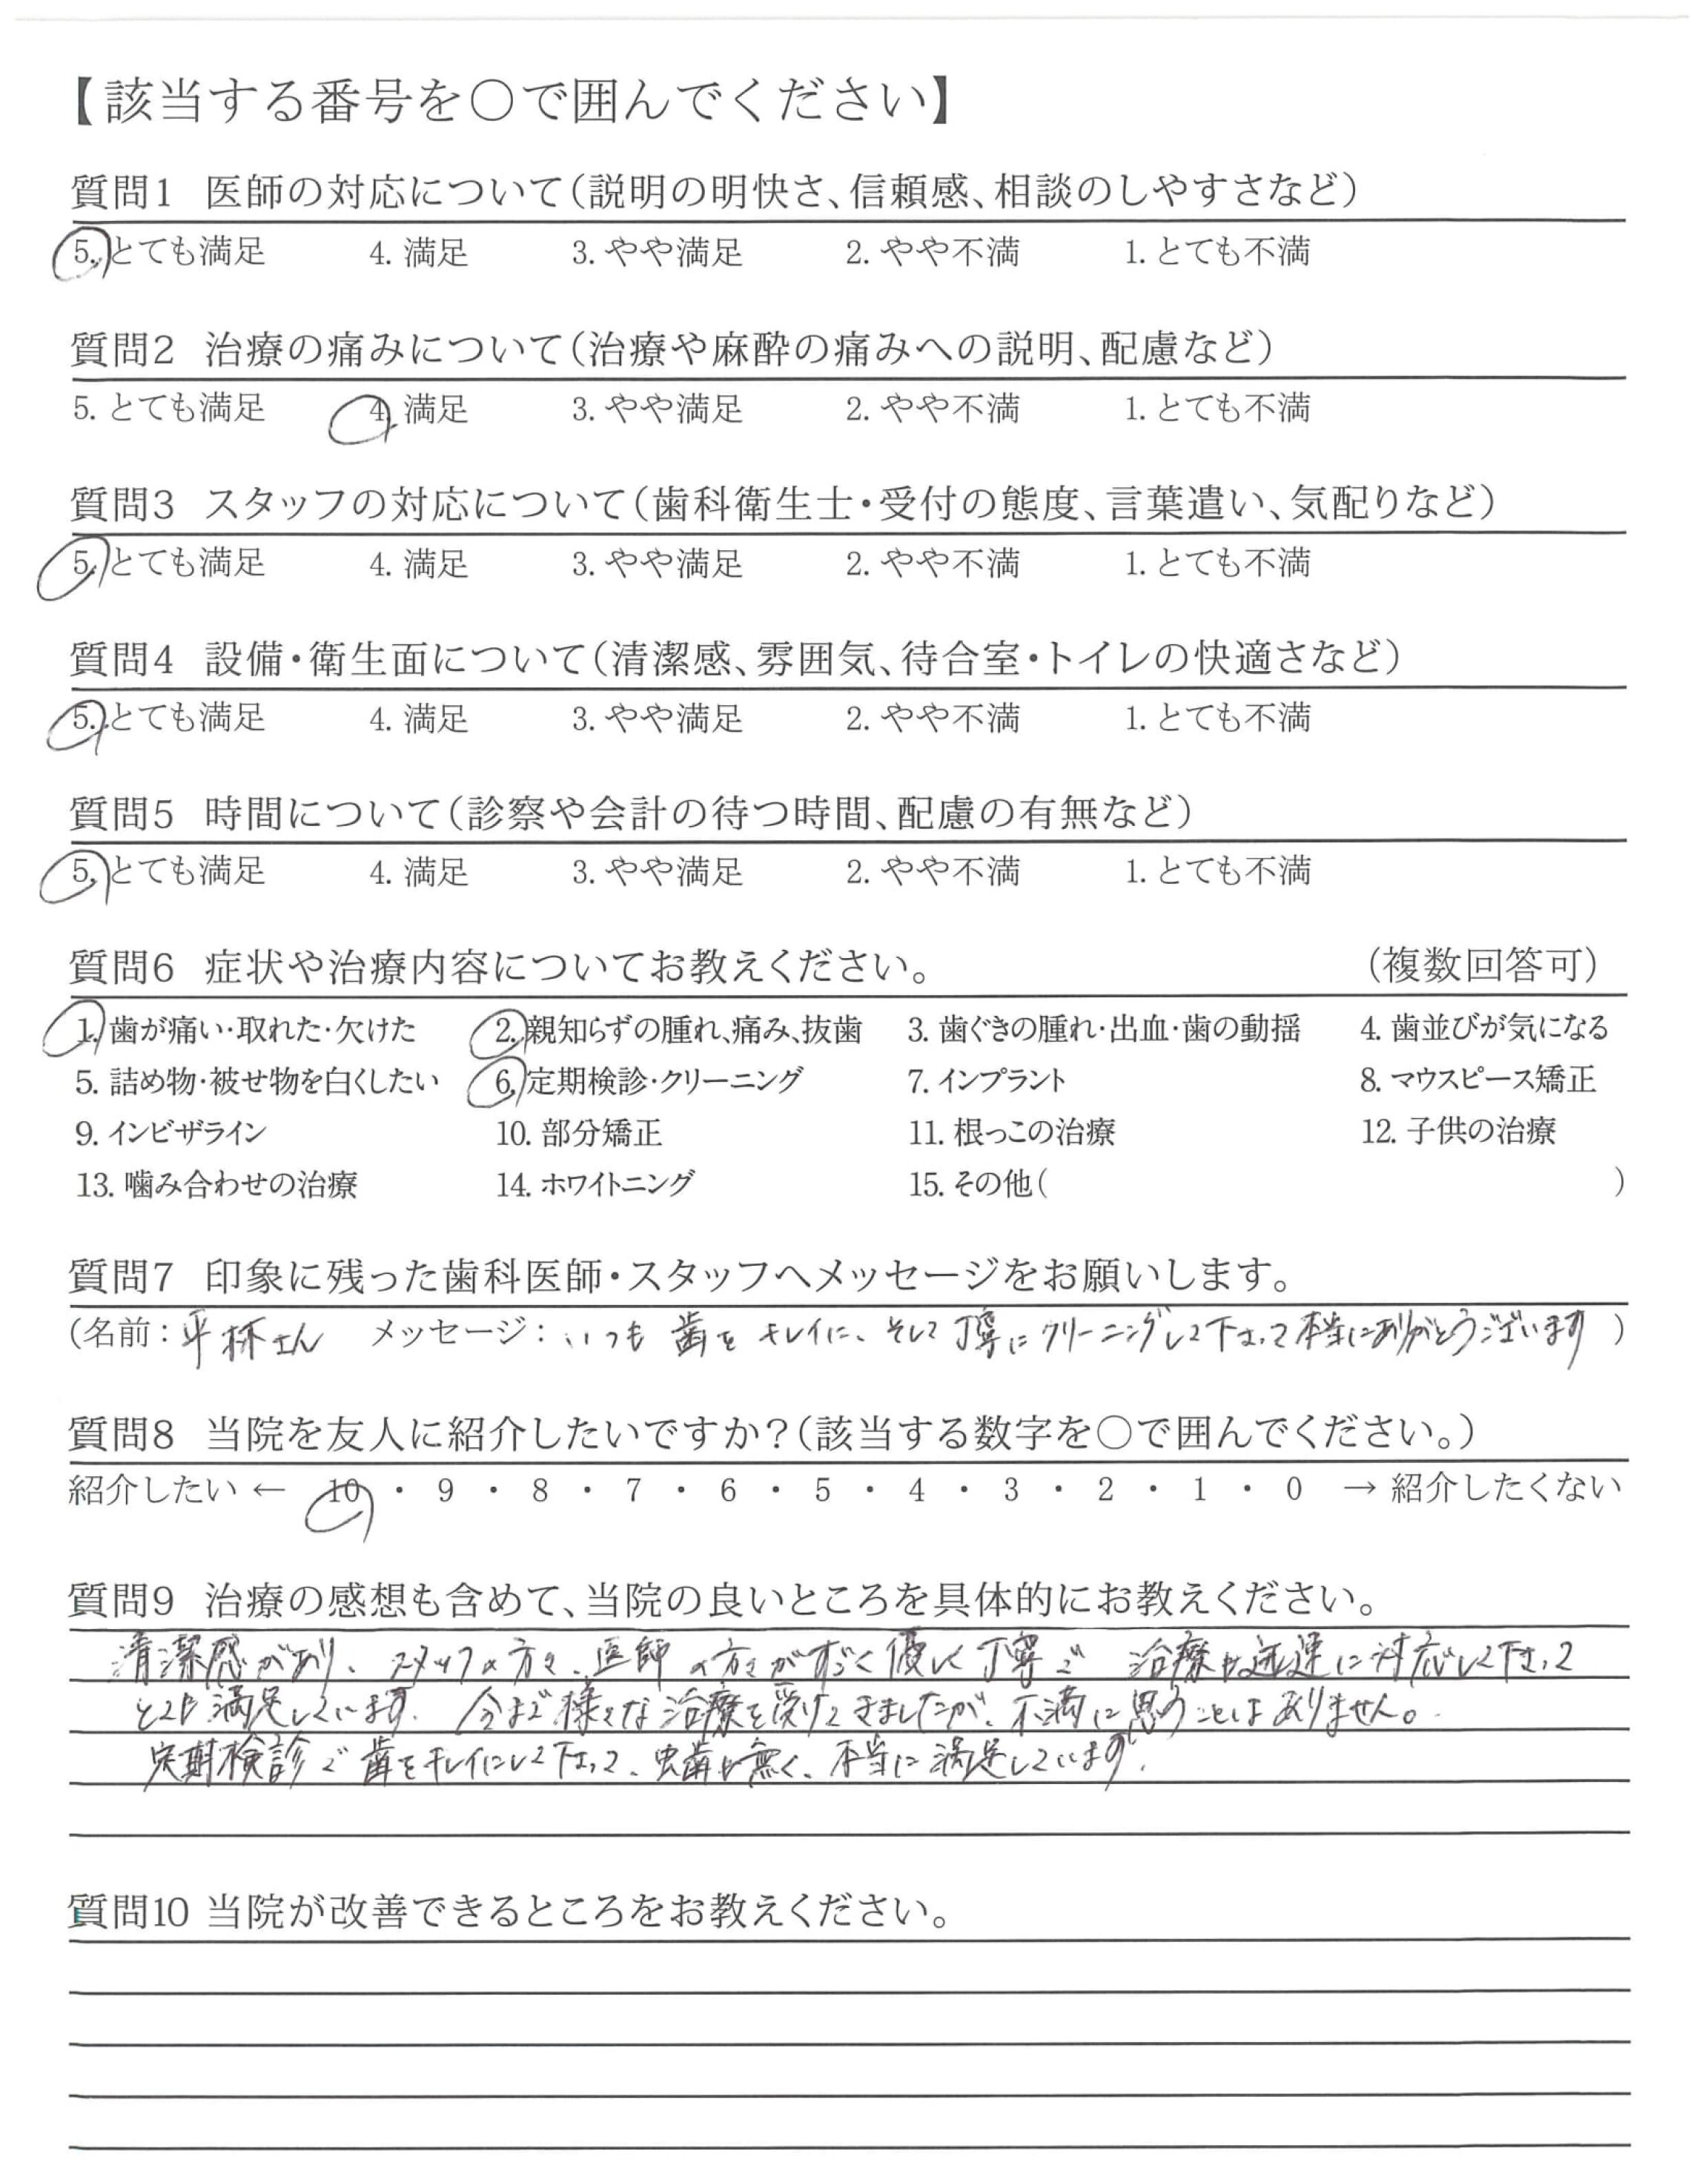 【該当する番号を○で囲んでください】
質問1 医師の対応について(説明の明快さ、信頼感、相談のしやすさなど)
5. とても満足 4. 満足 3. やや満足 2. やや不満 1. とても不満
質問2 治療の痛みについて(治療や麻酔の痛みへの説明、配慮など)
5. とても満足 4. 満足 3. やや満足 2. やや不満 1. とても不満
質問3 スタッフの対応について(歯科衛生士・受付の態度、言葉遣い、気配りなど)
5. とても満足 4. 満足 3. やや満足 2. やや不満 1. とても不満
質問4 設備・衛生面について(清潔感、雰囲気、待合室・トイレの快適さなど)
5. とても満足 4. 満足 3. やや満足 2. やや不満 1. とても不満
質問5 時間について(診察や会計の待つ時間、配慮の有無など)
5. とても満足 4. 満足 3. やや満足 2. やや不満 1. とても不満
質問6 症状や治療内容についてお教えください。 (複数回答可)
1. 歯が痛い・取れた・欠けた 2. 親知らずの腫れ、痛み、抜歯 3. 歯ぐきの腫れ・出血・歯の動揺 4. 歯並びが気になる
5. 詰め物・被せ物を白くしたい 6. 定期検診・クリーニング 7. インプラント 8. マウスピース矯正
9. インビザライン 10. 部分矯正 11. 根っこの治療 12. 子供の治療
13. 噛み合わせの治療 14. ホワイトニング 15. その他( )
質問7 印象に残った歯科医師・スタッフへメッセージをお願いします。
(名前：平林さん メッセージ：いつも歯をキレイに、そして丁寧にクリーニングして下さって本当にありがとうございます)
質問8 当院を友人に紹介したいですか?(該当する数字を○で囲んでください。)
紹介したい ← 10 ・ 9 ・ 8 ・ 7 ・ 6 ・ 5 ・ 4 ・ 3 ・ 2 ・ 1 ・ 0 → 紹介したくない
質問9 治療の感想も含めて、当院の良いところを具体的にお教えください。
清潔感があり、スタッフの方々、医師の方々がすごく優しく丁寧で 治療も迅速に対応して下さって
とても満足しています。今まで様々な治療を受けてきましたが、不満に思うことはありません。
定期検診で歯をキレイにして下さって、虫歯も無く、本当に満足しています。
質問10 当院が改善できるところをお教えください。